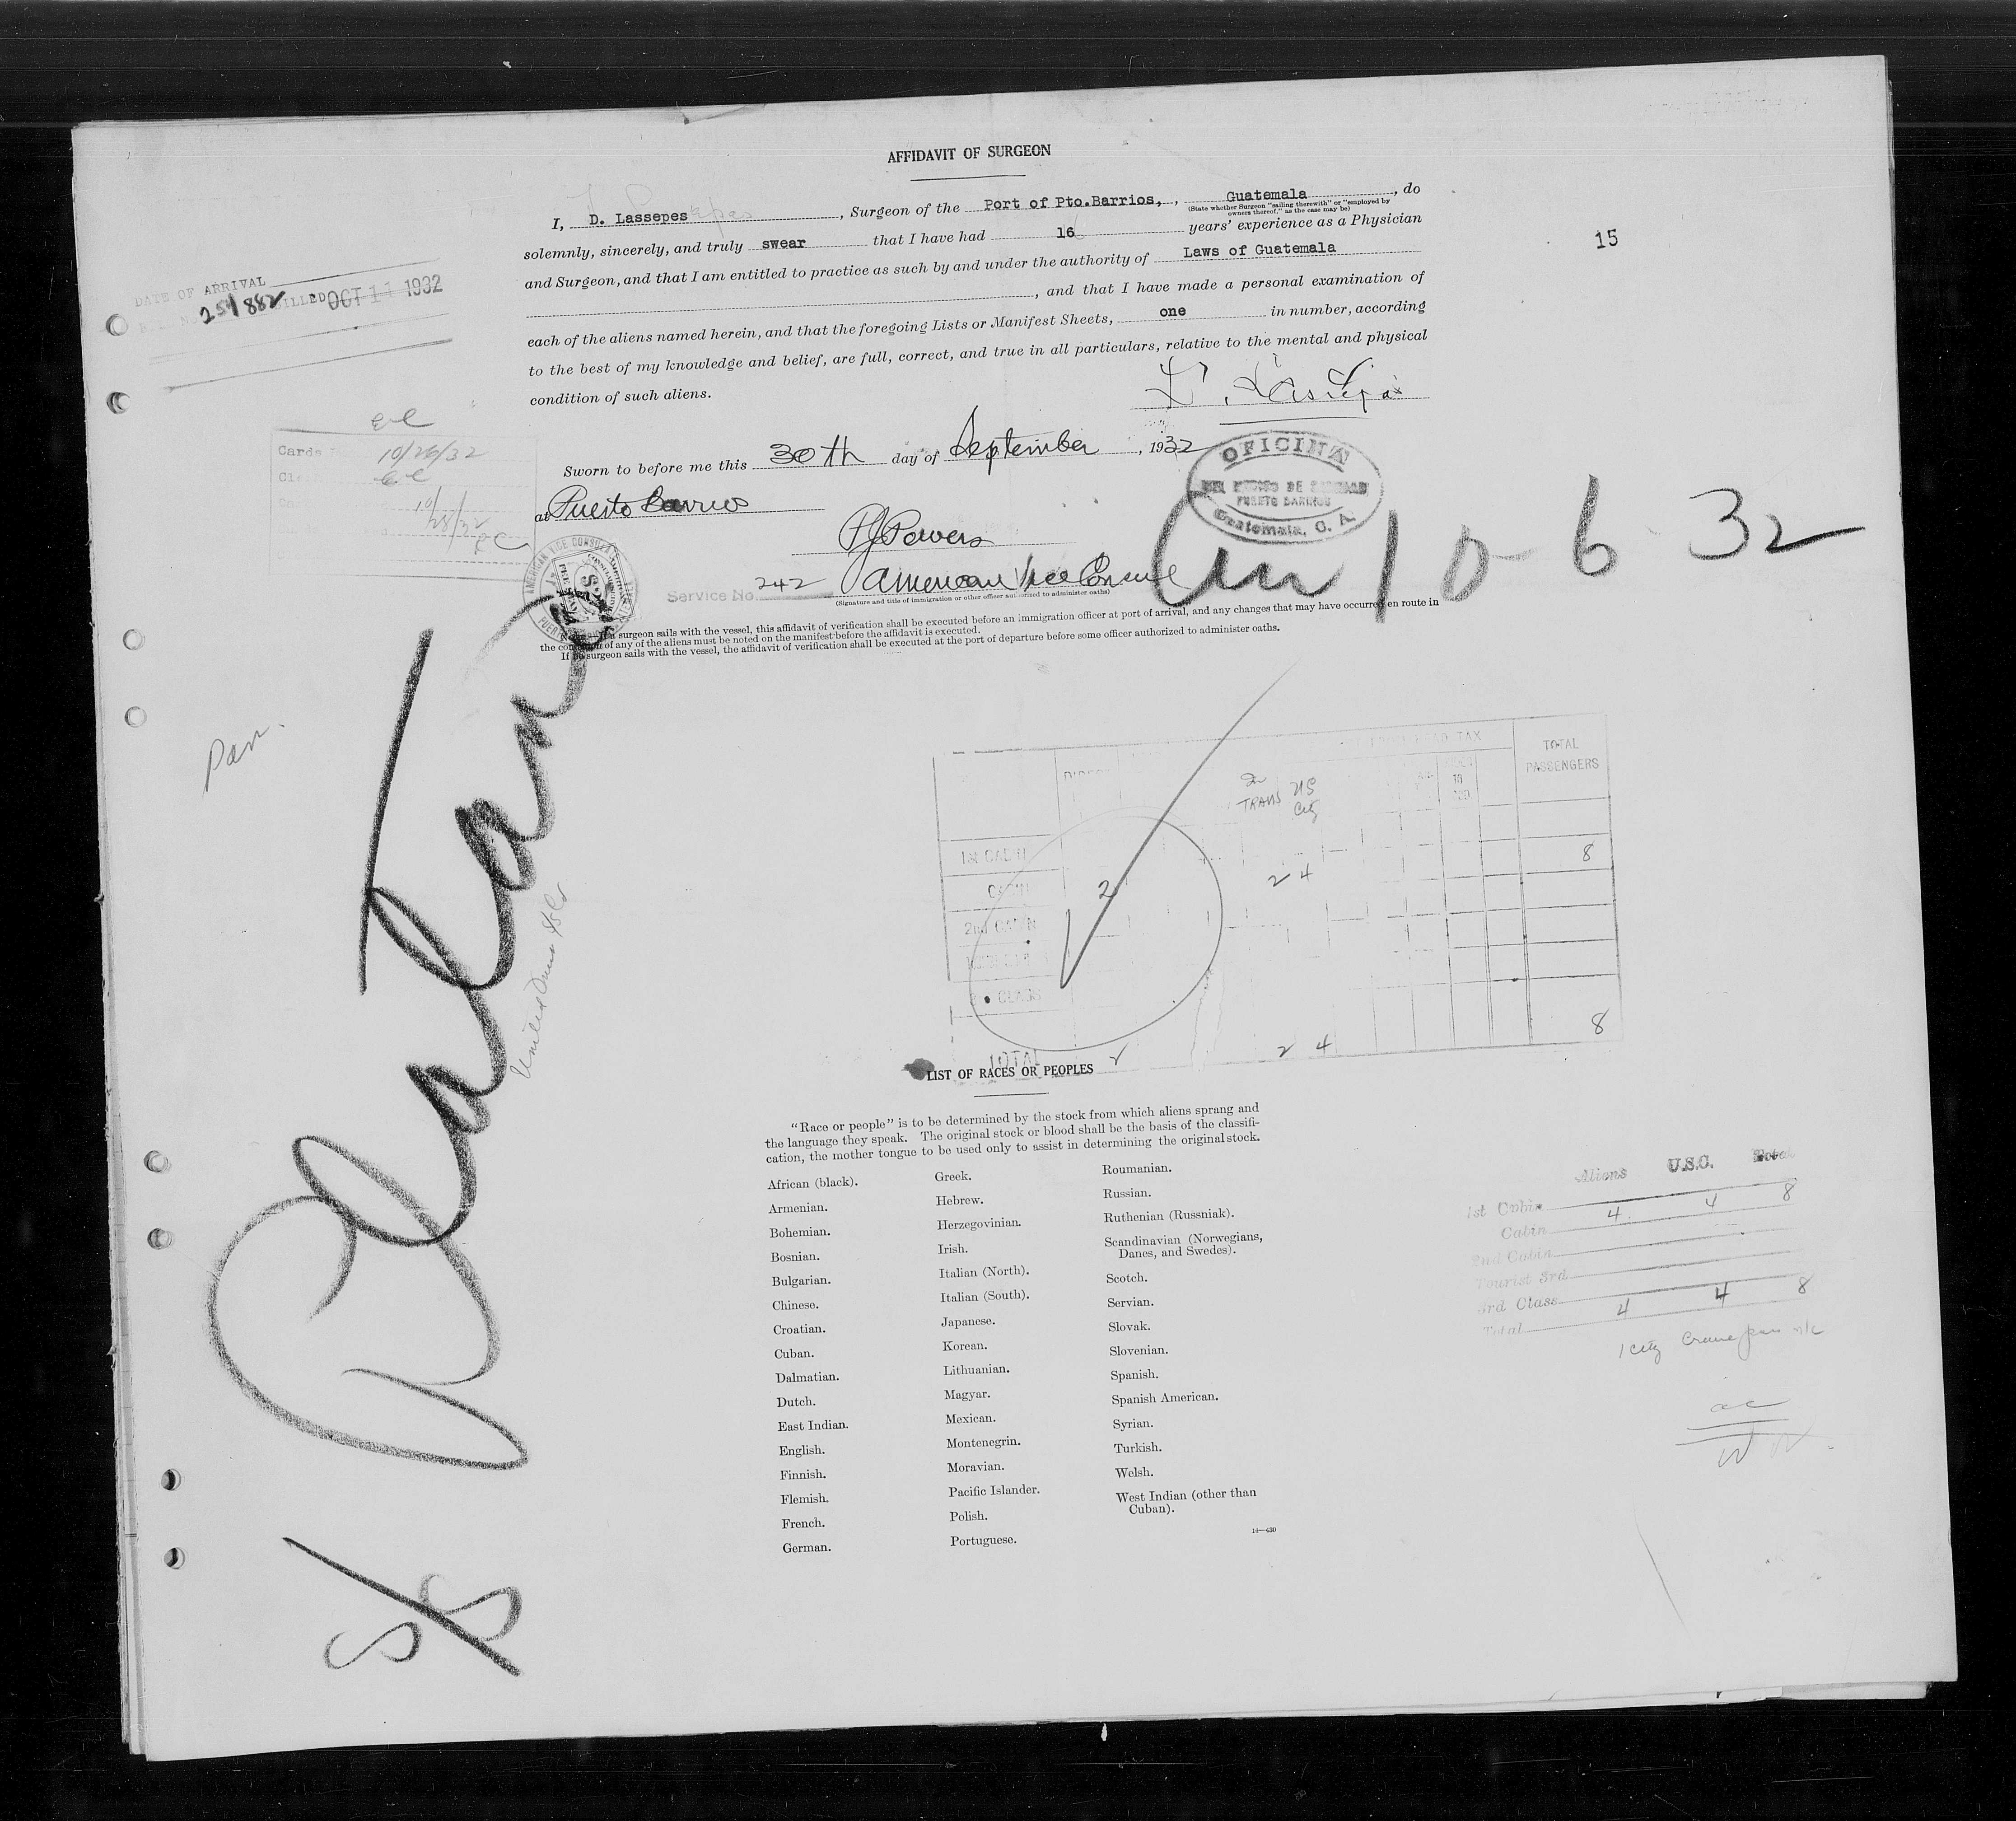 AFFIDAVIT OF SURGEON
I, D. Lassepes, Surgeon of the Port of Pto.Barrios, , Guatemala, do
(State whether Surgeon "sailing therewith" or "employed by
owners thereof," as the case may be)
solemnly, sincerely, and truly swear that I have had 16 years' experience as a Physician
and Surgeon, and that I am entitled to practice as such by and under the authority of Laws of Guatemala
, and that I have made a personal examination of
each of the aliens named herein, and that the foregoing Lists or Manifest Sheets, one in number, according
to the best of my knowledge and belief, are full, correct, and true in all particulars, relative to the mental and physical
condition of such aliens.
15
DATE OF ARRIVAL
OCT 11 1932
Cards
10/26/32
Sworn to before me this 30th day of September, 1932
at Puerto Barrios
OFICINA
PUERTO BARRIOS
Guatemala, C. A.
PJ Powers
Service No. 242 American Vice Consul
(Signature and title of immigration or other officer authorized to administer oaths)
10-6 32
surgeon sails with the vessel, this affidavit of verification shall be executed before an immigration officer at port of arrival, and any changes that may have occurred en route in
the condition of any of the aliens must be noted on the manifest before the affidavit is executed.
If no surgeon sails with the vessel, the affidavit of verification shall be executed at the port of departure before some officer authorized to administer oaths.
AMERICAN VICE CONSUL
S/S Platano
TOTAL
PASSENGERS
TRANS
1st CABIN 8
CABIN 2 2 4
2nd CABIN
CLASS
TOTAL 2 4 8
LIST OF RACES OR PEOPLES
"Race or people" is to be determined by the stock from which aliens sprang and
the language they speak. The original stock or blood shall be the basis of the classifi-
cation, the mother tongue to be used only to assist in determining the original stock.
African (black).
Armenian.
Bohemian.
Bosnian.
Bulgarian.
Chinese.
Croatian.
Cuban.
Dalmatian.
Dutch.
East Indian.
English.
Finnish.
Flemish.
French.
German.
Greek.
Hebrew.
Herzegovinian.
Irish.
Italian (North).
Italian (South).
Japanese.
Korean.
Lithuanian.
Magyar.
Mexican.
Montenegrin.
Moravian.
Pacific Islander.
Polish.
Portuguese.
Roumanian.
Russian.
Ruthenian (Russniak).
Scandinavian (Norwegians,
Danes, and Swedes).
Scotch.
Servian.
Slovak.
Slovenian.
Spanish.
Spanish American.
Syrian.
Turkish.
Welsh.
West Indian (other than
Cuban).
14—430
Aliens U.S.C. Total
1st Cabin 4 4 8
Cabin
2nd Cabin
Tourist 3rd
3rd Class
Total 4 4 8